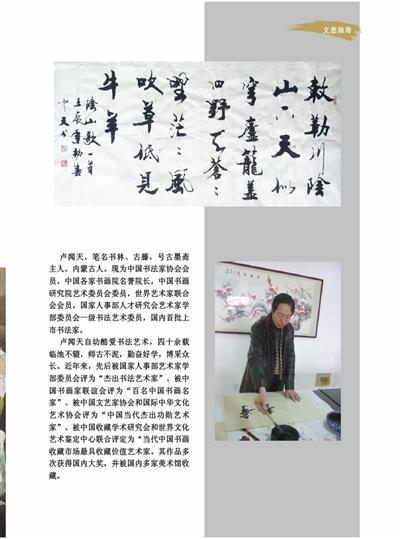 文墨瀚海
敕勒川陰
山下天似
穹廬籠蓋
四野天蒼蒼
野茫茫風
吹草低見
牛羊
卢闻天，笔名书林、古藤，号古墨斋
主人，内蒙古人。现为中国书法家协会会
员，中国各家书画院名誉院长，中国书画
研究院艺术委员会委员，世界艺术家联合
会会员，国家人事部人才研究会艺术家学
部委员会一级书法艺术委员，国内首批上
市书法家。
卢闻天自幼酷爱书法艺术，四十余载
临池不辍，师古不泥，勤奋好学，博采众
长。近年来，先后被国家人事部艺术家学
部委员会评为“杰出书法艺术家”、被中
国书画家联谊会评为“百名中国书画名
家”、被中国文艺家协会和国际中华文化
艺术协会评为“中国当代杰出功勋艺术
家”、被中国收藏学术研究会和世界文化
艺术鉴定中心联合评定为“当代中国书画
收藏市场最具收藏价值艺术家。其作品多
次获得国内大奖，并被国内多家美术馆收
藏。